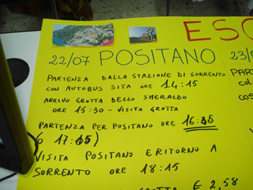 ESC
22/07 POSITANO
23/0
PARTENZA DALLA STAZIONE DI SORRENTO
CON AUTOBUS SITA ORE 14:15
ARRIVO GROTTA DELLO SMERALDO
ORE 15:30 - VISITA GROTTA
PARTENZA PER POSITANO ORE
VISITA POSITANO E RITORNO A
SORRENTO ORE 18:15
GROTTA € 2,58
PART